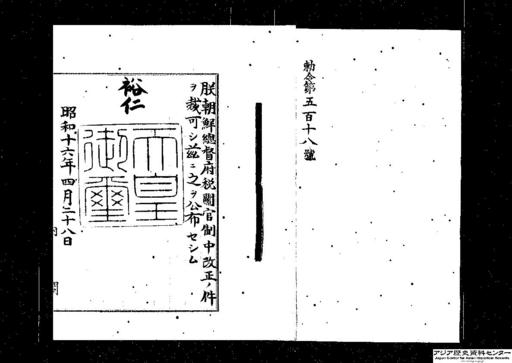 勅令第五百十八號
朕朝鮮總督府税關官制中改正ノ件
ヲ裁可シ茲ニ之ヲ公布セシム
裕仁
天皇
御璽
昭和十六年四月二十八日
アジア歴史資料センター
Japan Center for Asian Historical Records